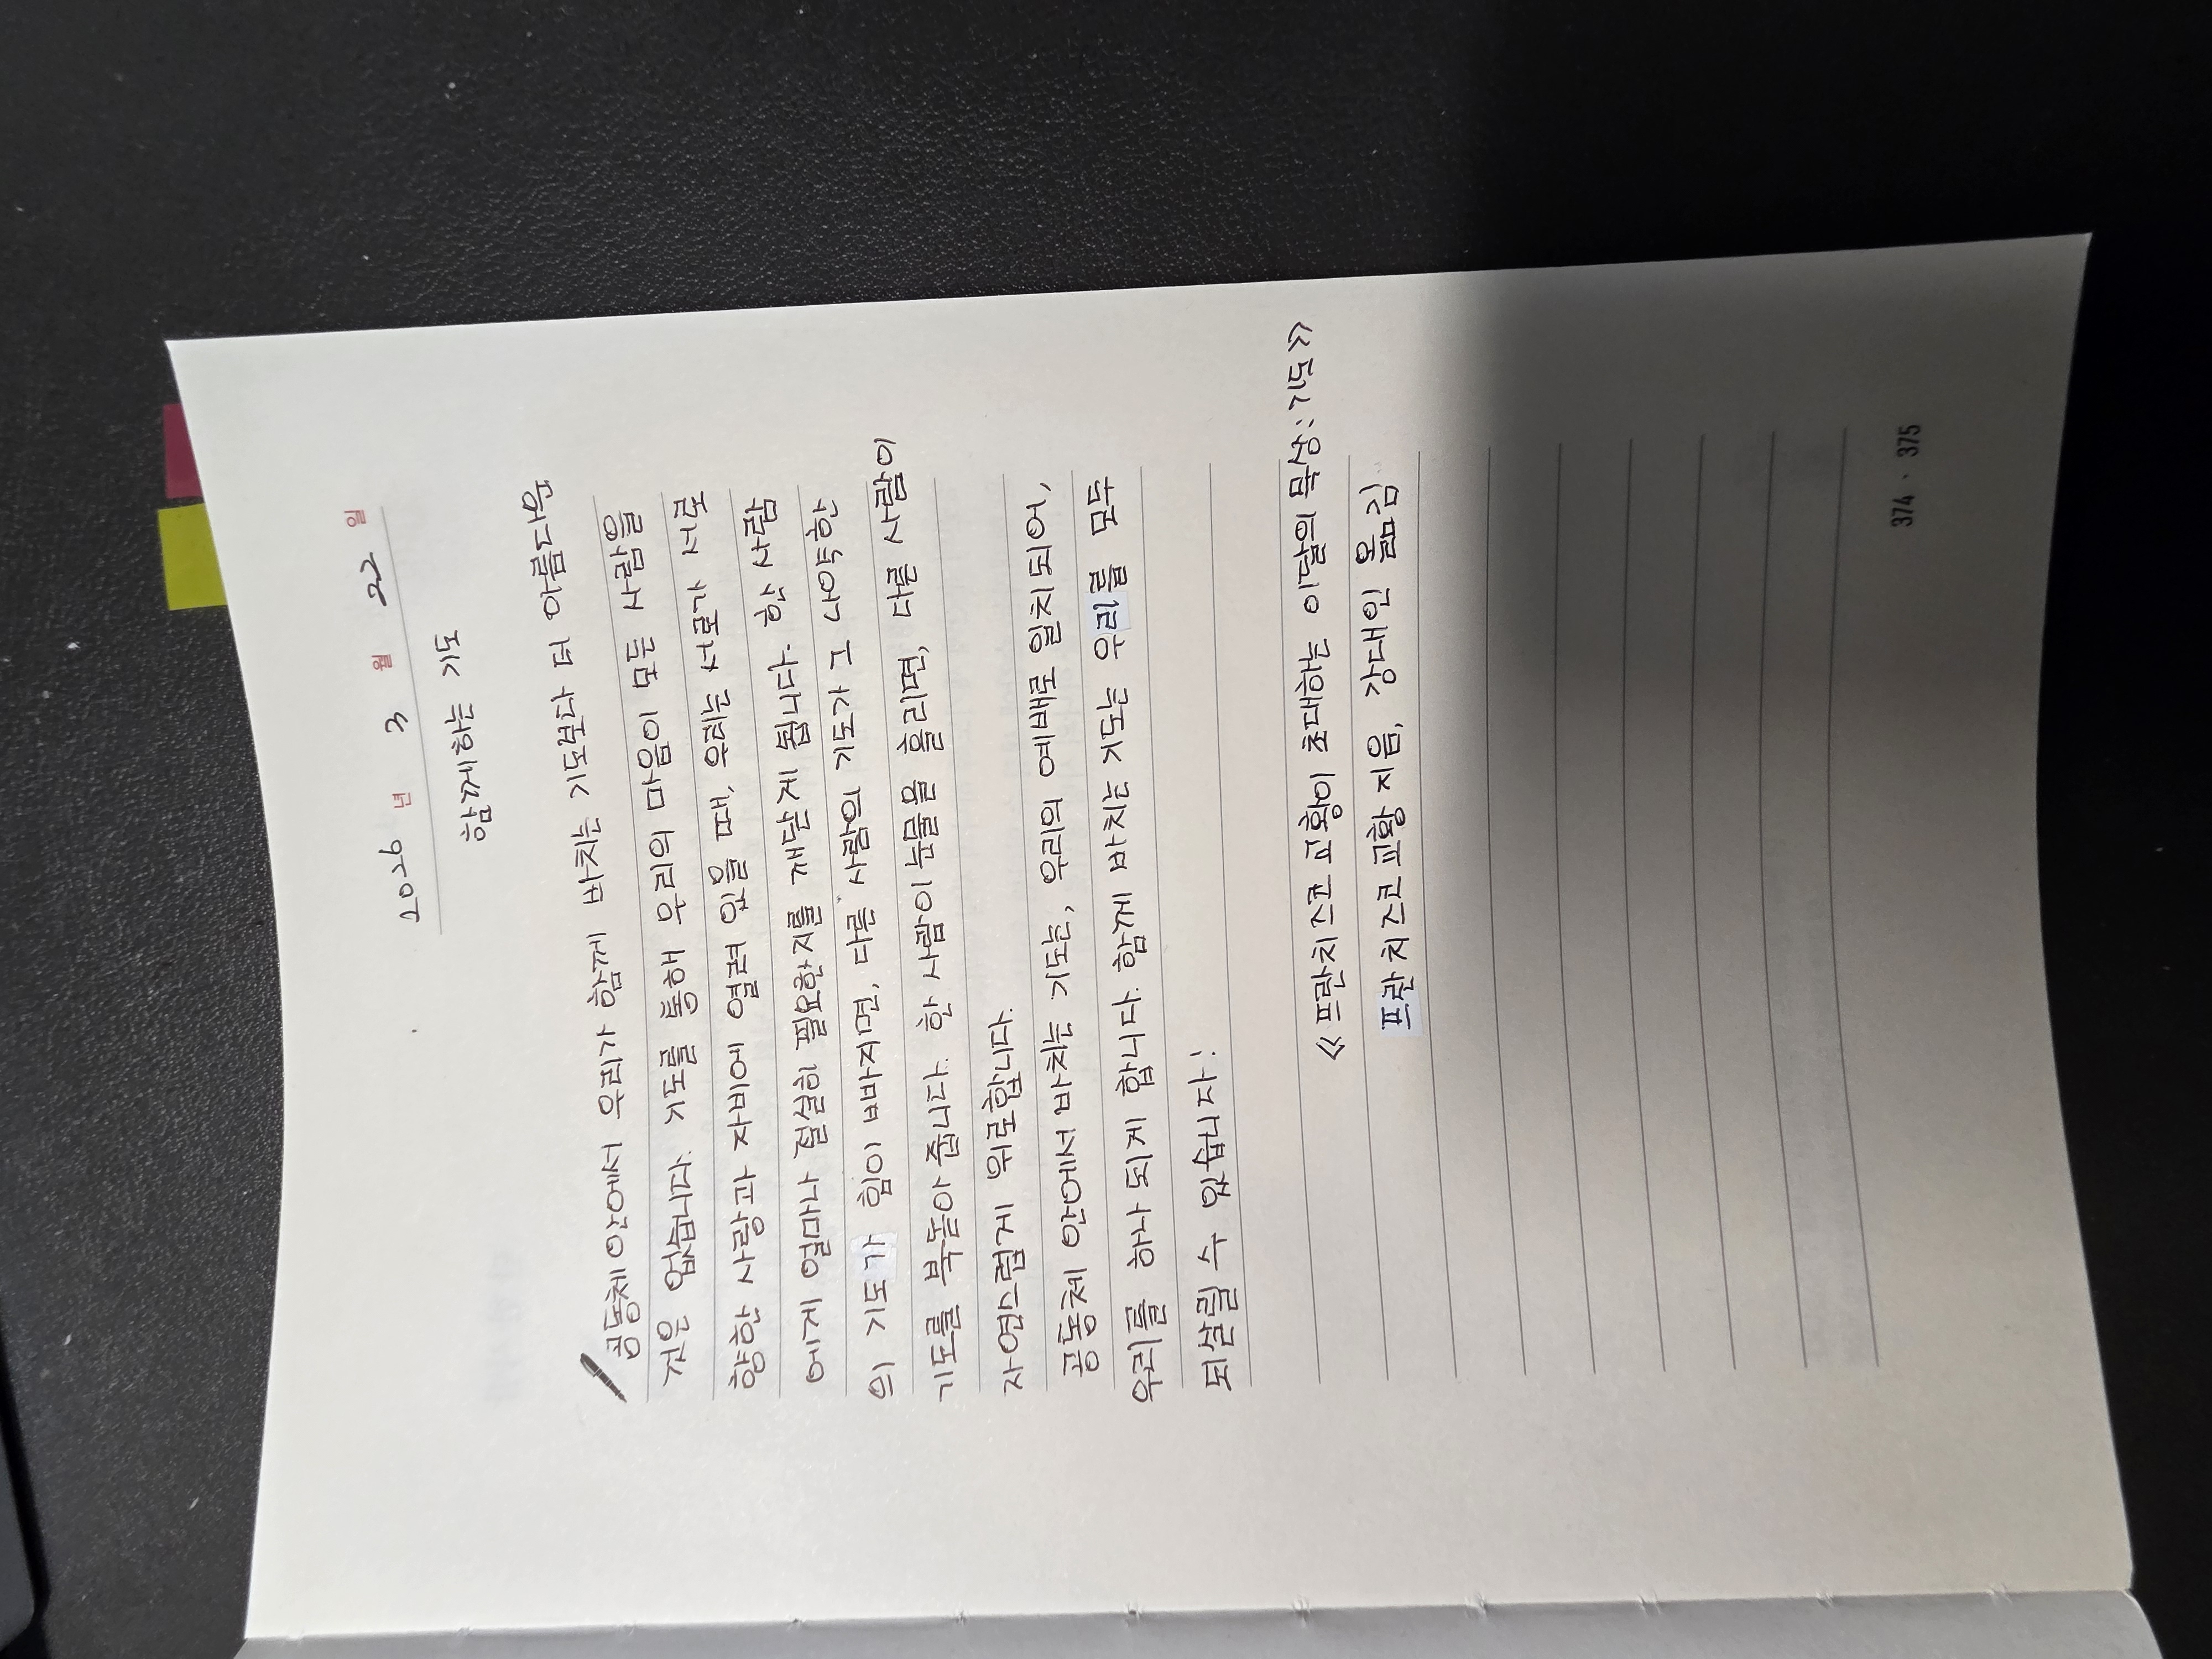 2026 년 3 월 22 일
함께하는 기도
공동체 안에서 우리가 함께 바치는 기도보다 더 아름다운
것은 없습니다. 기도를 통해 우리의 마음이 모든 사람을
향한 사랑과 자비에 열려 있을 때, 우리는 서로가 서로
에게 얼마나 절실히 필요한지를 깨닫게 됩니다. 한 사람
의 기도가 힘이 빠지면, 다른 사람의 기도가 그 나약한
기도를 북돋아 줍니다. 한 사람이 눈물을 흘리면, 다른 사람이
자연스럽게 위로합니다.
공동체 안에서 바치는 기도는, 우리의 예배로 일치되어,
우리를 하나 되게 합니다. 함께 바치는 기도는 우리를 모두
되살릴 수 있습니다!
《프란치스코 교황이 초대하는 이달의 묵상: 기도》
프란치스코 교황 지음, 강대인 옮김
374 · 375